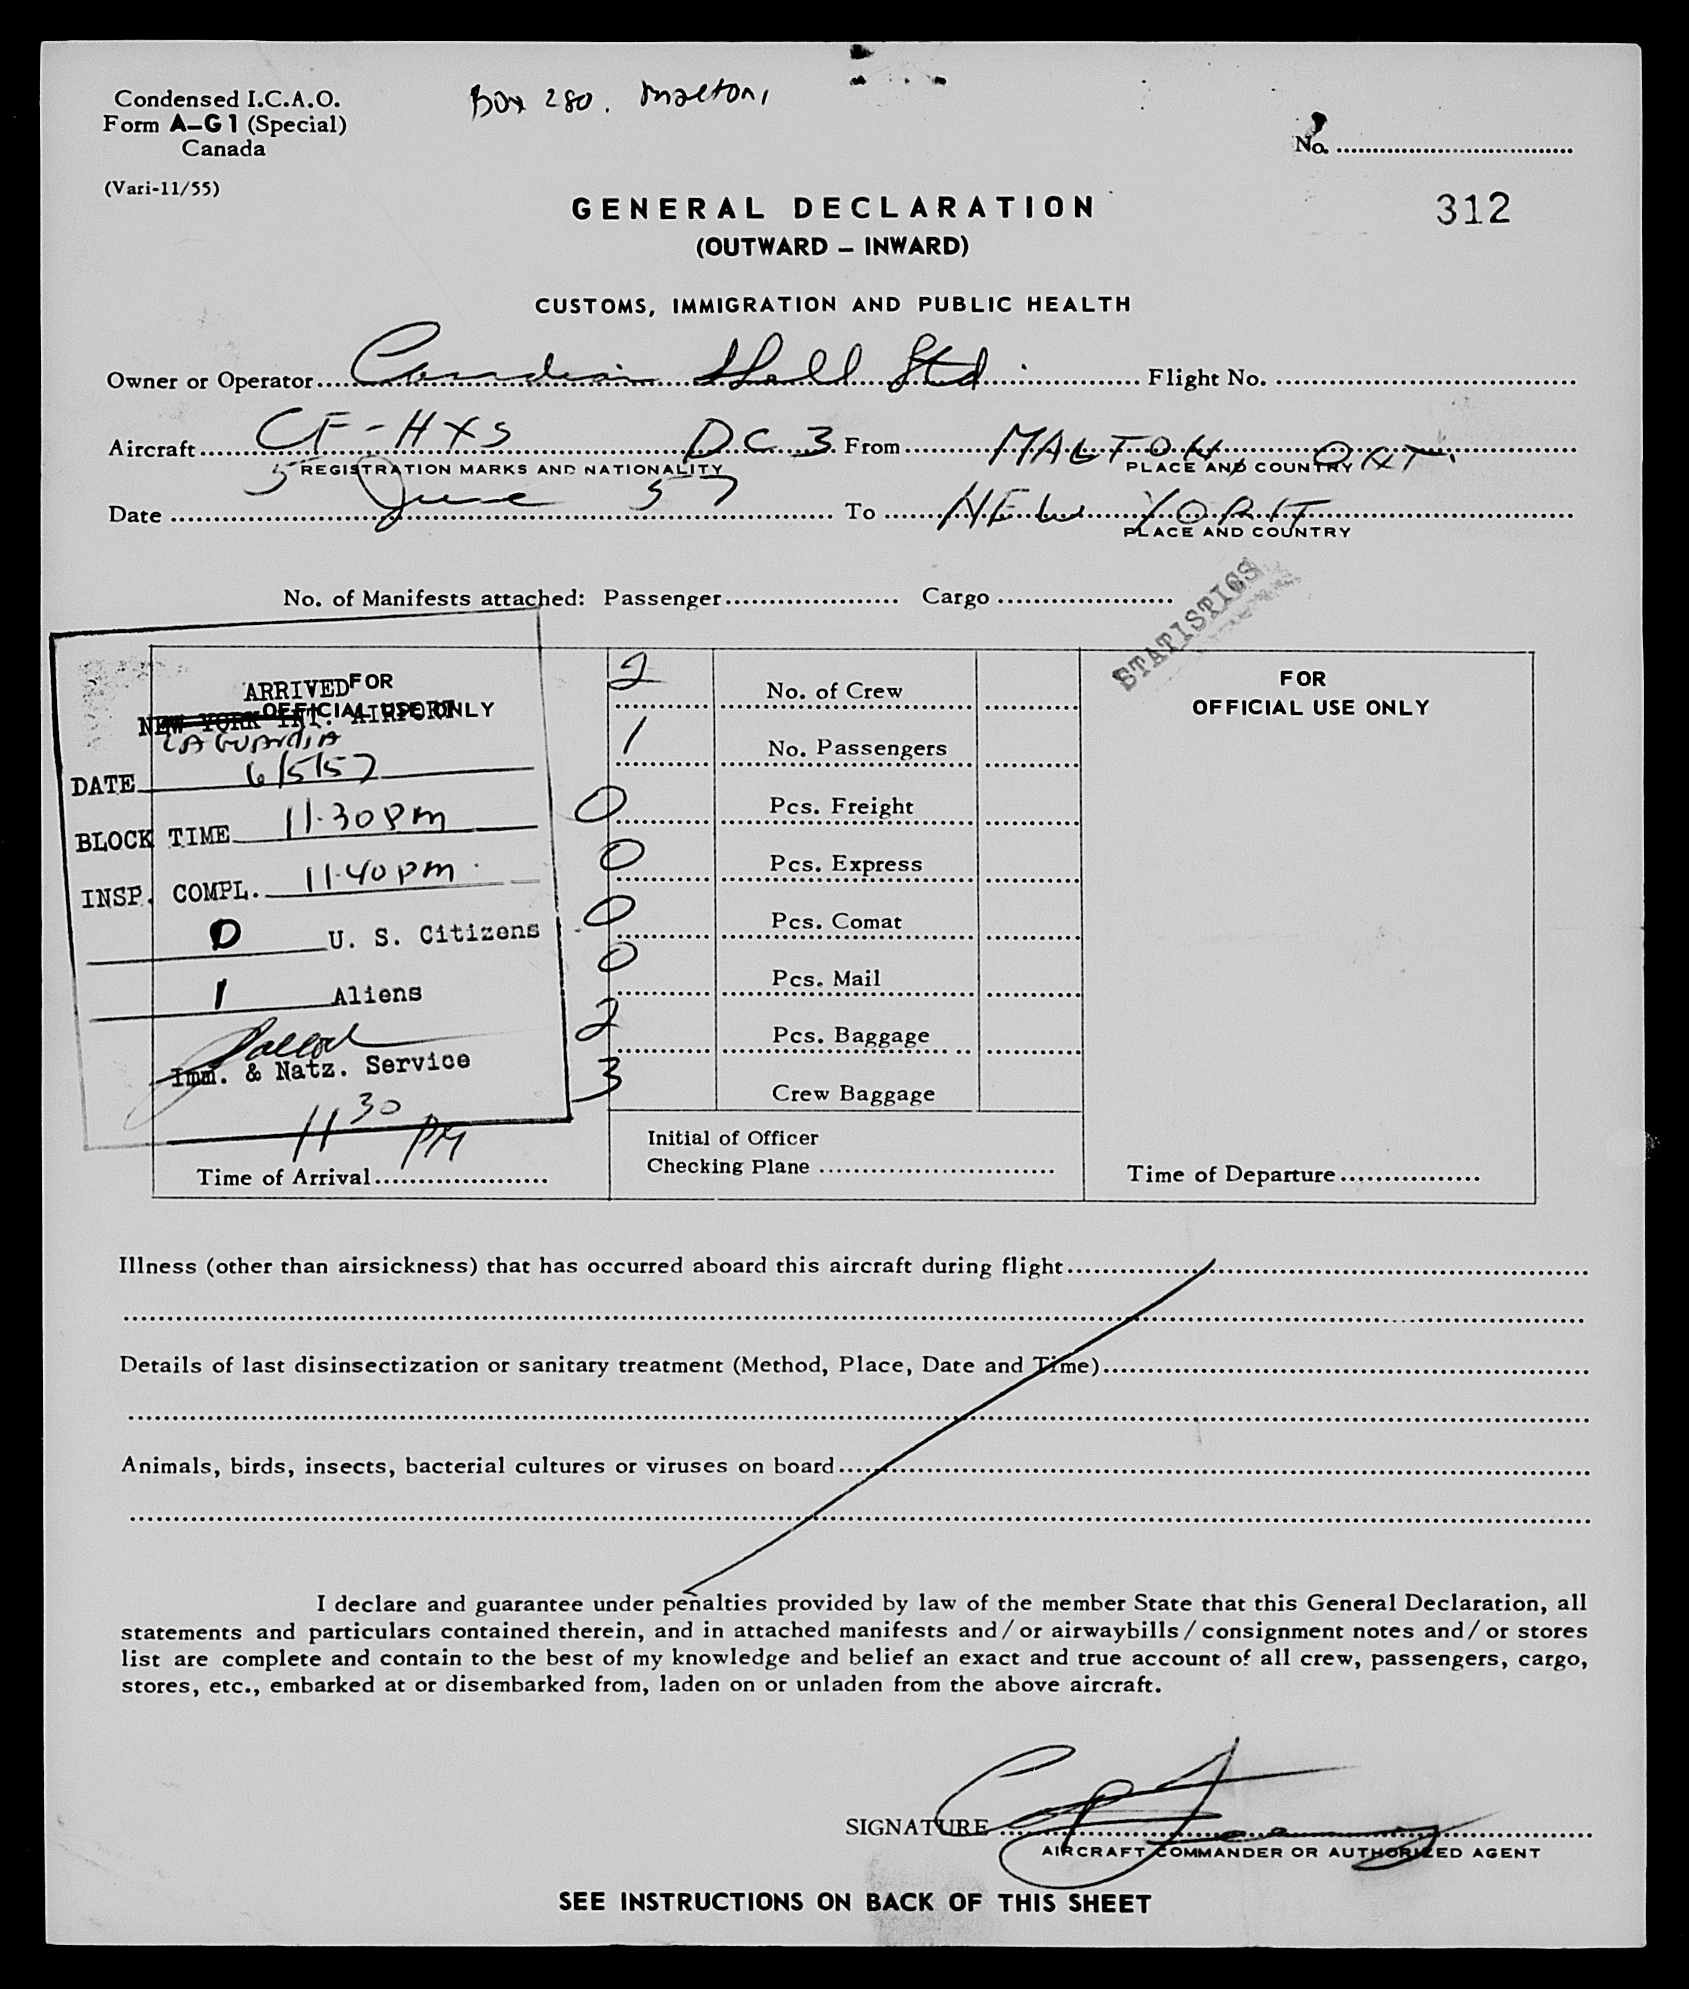 Condensed I.C.A.O.
Form A-G1 (Special)
Canada
(Vari-11/55)
Box 280, Malton,
No.
312
GENERAL DECLARATION
(OUTWARD – INWARD)
CUSTOMS, IMMIGRATION AND PUBLIC HEALTH
Owner or Operator Canadian Shell Ltd Flight No.
Aircraft CF-HXS DC3 From MALTON, ONT.
REGISTRATION MARKS AND NATIONALITY PLACE AND COUNTRY
Date 5 June 57 To NEW YORK
PLACE AND COUNTRY
No. of Manifests attached: Passenger Cargo
STATISTICS
FOR
OFFICIAL USE ONLY
ARRIVED
NEW YORK INT. AIRPORT
LA GUARDIA
DATE 6/5/57
BLOCK TIME 11.30 PM
INSP. COMPL. 11.40 PM
0 U. S. Citizens
1 Aliens
Imm. & Natz. Service
11 30 PM
Time of Arrival
2 No. of Crew
1 No. Passengers
0 Pcs. Freight
0 Pcs. Express
0 Pcs. Comat
0 Pcs. Mail
2 Pcs. Baggage
3 Crew Baggage
Initial of Officer
Checking Plane
FOR
OFFICIAL USE ONLY
Time of Departure
Illness (other than airsickness) that has occurred aboard this aircraft during flight
Details of last disinsectization or sanitary treatment (Method, Place, Date and Time)
Animals, birds, insects, bacterial cultures or viruses on board
I declare and guarantee under penalties provided by law of the member State that this General Declaration, all
statements and particulars contained therein, and in attached manifests and/or airwaybills/consignment notes and/or stores
list are complete and contain to the best of my knowledge and belief an exact and true account of all crew, passengers, cargo,
stores, etc., embarked at or disembarked from, laden on or unladen from the above aircraft.
SIGNATURE
AIRCRAFT COMMANDER OR AUTHORIZED AGENT
SEE INSTRUCTIONS ON BACK OF THIS SHEET